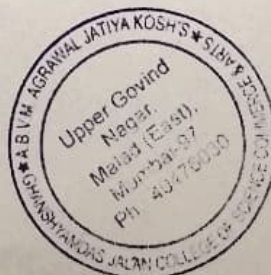 ★ A.B.V.M. AGRAWAL JATIYA KOSH'S ★
GHANSHYAMDAS JALAN COLLEGE OF SCIENCE COMMERCE & ARTS
Upper Govind
Nagar,
Malad (East),
Mumbai-97
Ph.